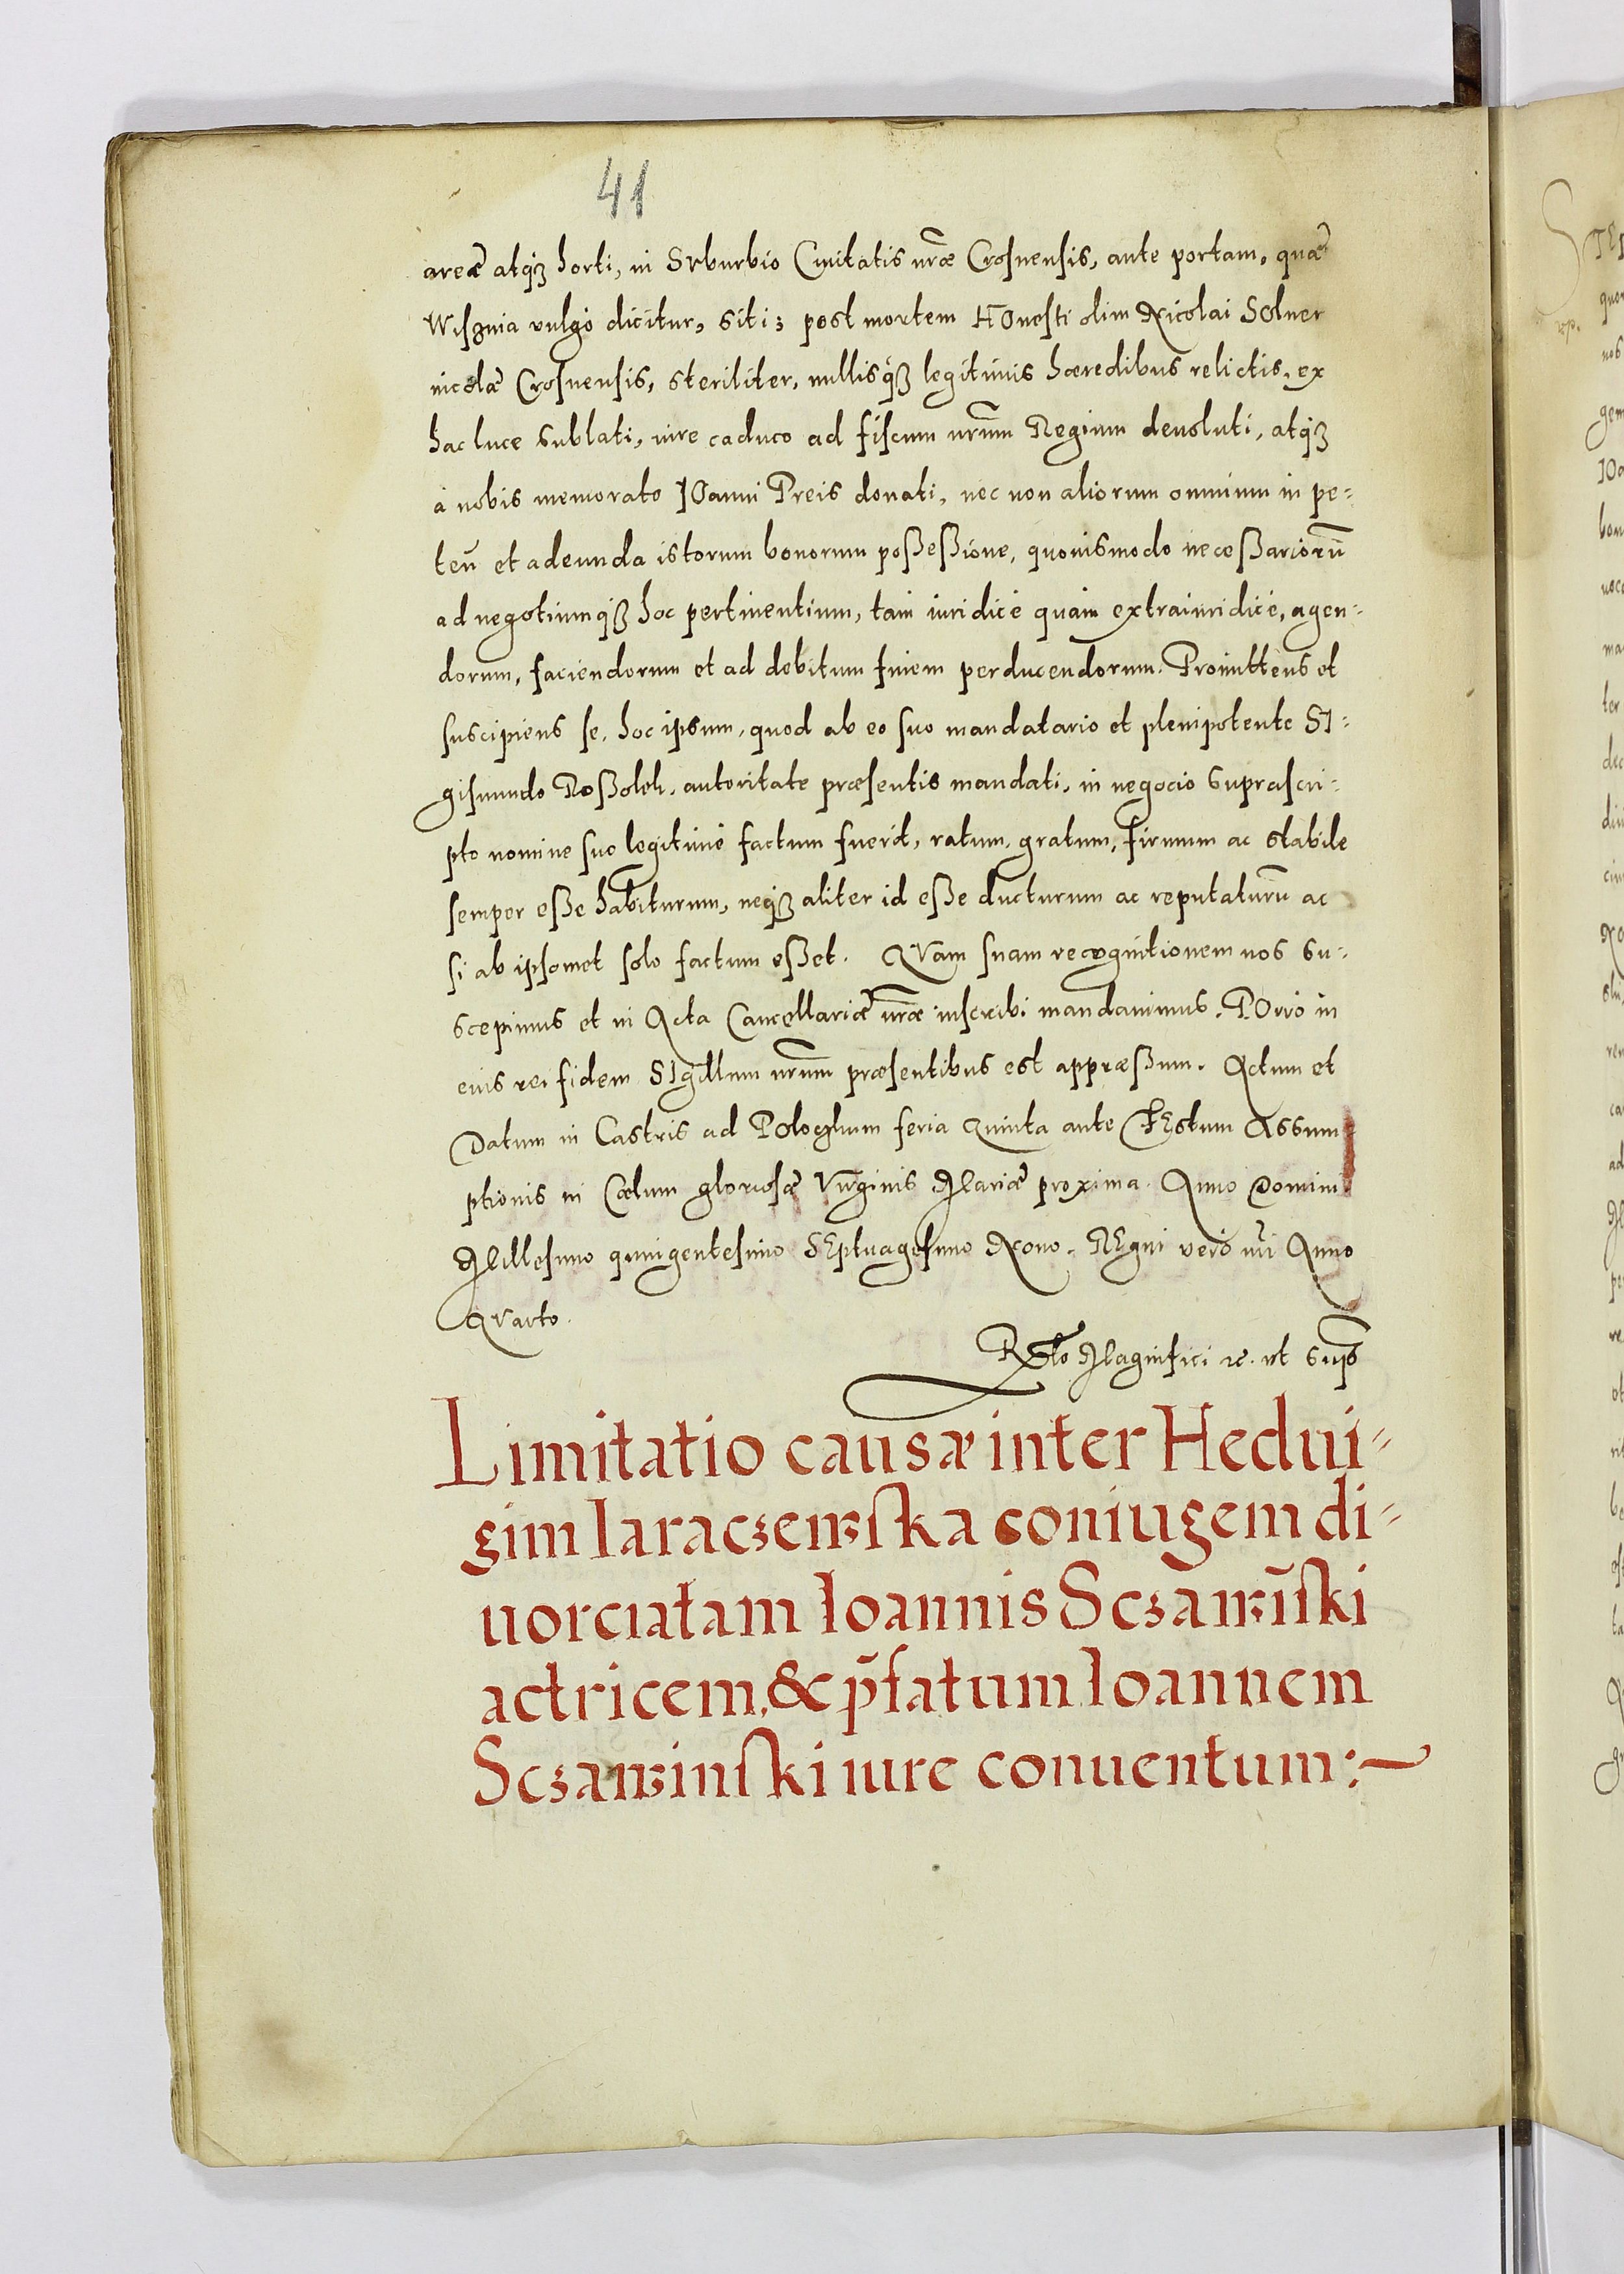 41
areæ atqꝫ horti, in Svburbio Ciuitatis nr̃æ Crosnensis, ante portam, quæ
Wisznia vulgò dicitur, siti; post mortem HOnesti olim Nicolai Solner
incolæ Crosnensis, steriliter, nullisqꝫ legitimis hæredibus relictis, ex
hac luce sublati, iure caduco ad fiscum nrũm Regium deuoluti, atqꝫ
à nobis memorato IOanni Preis donati, nec non aliorum omnium in pe-
ten̄ et adeunda istorum bonorum poßeßione, quouismodo neceßariorũ
ad negotiumqꝫ hoc pertinentium, tam iuridicè quàm extraiuridicè, agen-
dorum, faciendorum et ad debitum finem perducendorum. Promittens et
suscipiens se, hoc ipsum, quod ab eo suo mandatario et plenipotente SI-
gismundo Roßolek, autoritate præsentis mandati, in negocio suprascri-
pto nomine suo legitimè factum fuerit, ratum, gratum, firmum ac stabile
semper eße habiturum, neqꝫ aliter id eße ducturum ac reputaturũ ac
si ab ipsomet solo factum eßet. QVam suam recognitionem nos su-
scepimus et in Acta Cancellariæ nr̃æ inscribi mandauimus. POrro in
eius rei fidem SIgillum nrũm præsentibus est appræßum. Actum et
Datum in Castris ad Polocţkum feria Quinta ante FEstum Assum-
ptionis in Cœlum gloriosæ Virginis Mariæ proxima. Anno Domini
Millesimo quingentesimo SEptuagesimo Nono. REgni verò nr̃i Anno
QVarto.
Rẽlo Magnifici ꝛc. vt supͣ
Limitatio causæ inter Hedui-
gim Iaraczewska coniugem di-
uorciatam Ioannis Sczawiñski
actricem, & p̃fatum Ioannem
Sczawinski iure conuentum:~